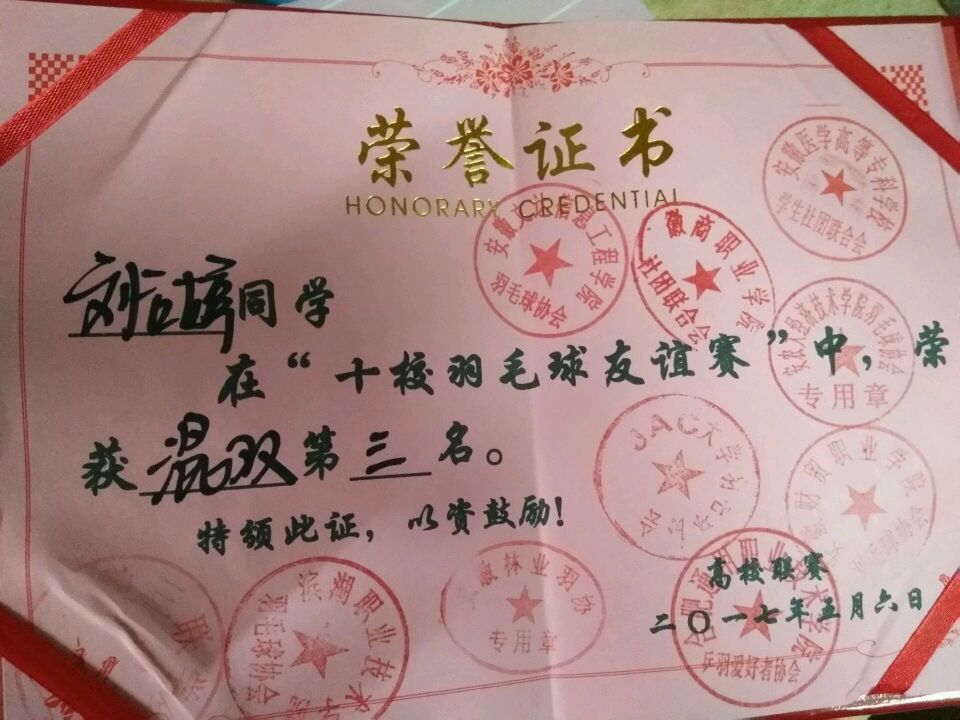 荣誉证书
HONORARY CREDENTIAL
同学
在“十校羽毛球友谊赛”中，荣
获混双第三名。
特颁此证，以资鼓励！
高校联赛
二〇一七年五月六日
安徽医学高等专科学校
学生社团联合会
安徽文达信息工程学院
羽毛球协会
徽商职业学院
社团联合会
安农大经济技术学院羽毛球协会
专用章
JAC大学
财贸职业学院
林业羽协
专用章
滨湖职业技术学院
毛球协会
合肥通用职业技术学院
乒羽爱好者协会